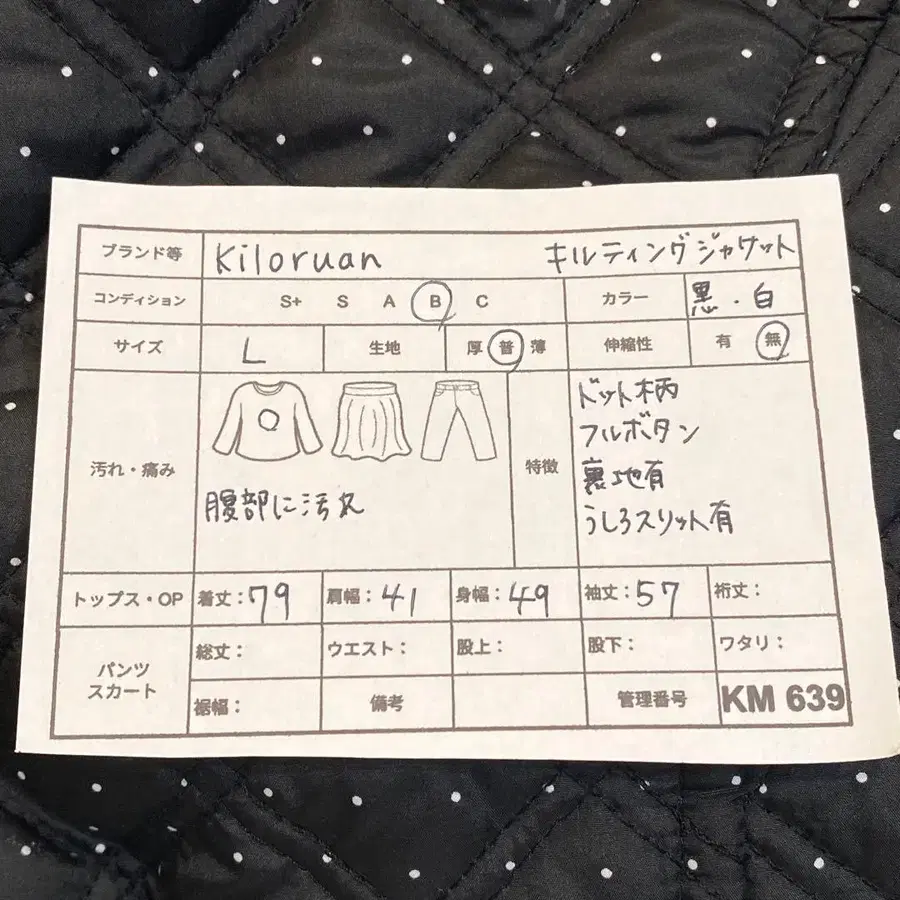 ブランド等 Kiloruan キルティングジャケット
コンディション S+ S A B C カラー 黒・白
サイズ L 生地 厚 普 薄 伸縮性 有 無
汚れ・痛み 腹部に汚れ
特徴
ドット柄
フルボタン
裏地有
うしろスリット有
トップス・OP 着丈:79 肩幅:41 身幅:49 袖丈:57 裄丈:
パンツ
スカート
総丈: ウエスト: 股上: 股下: ワタリ:
裾幅: 備考 管理番号 KM 639